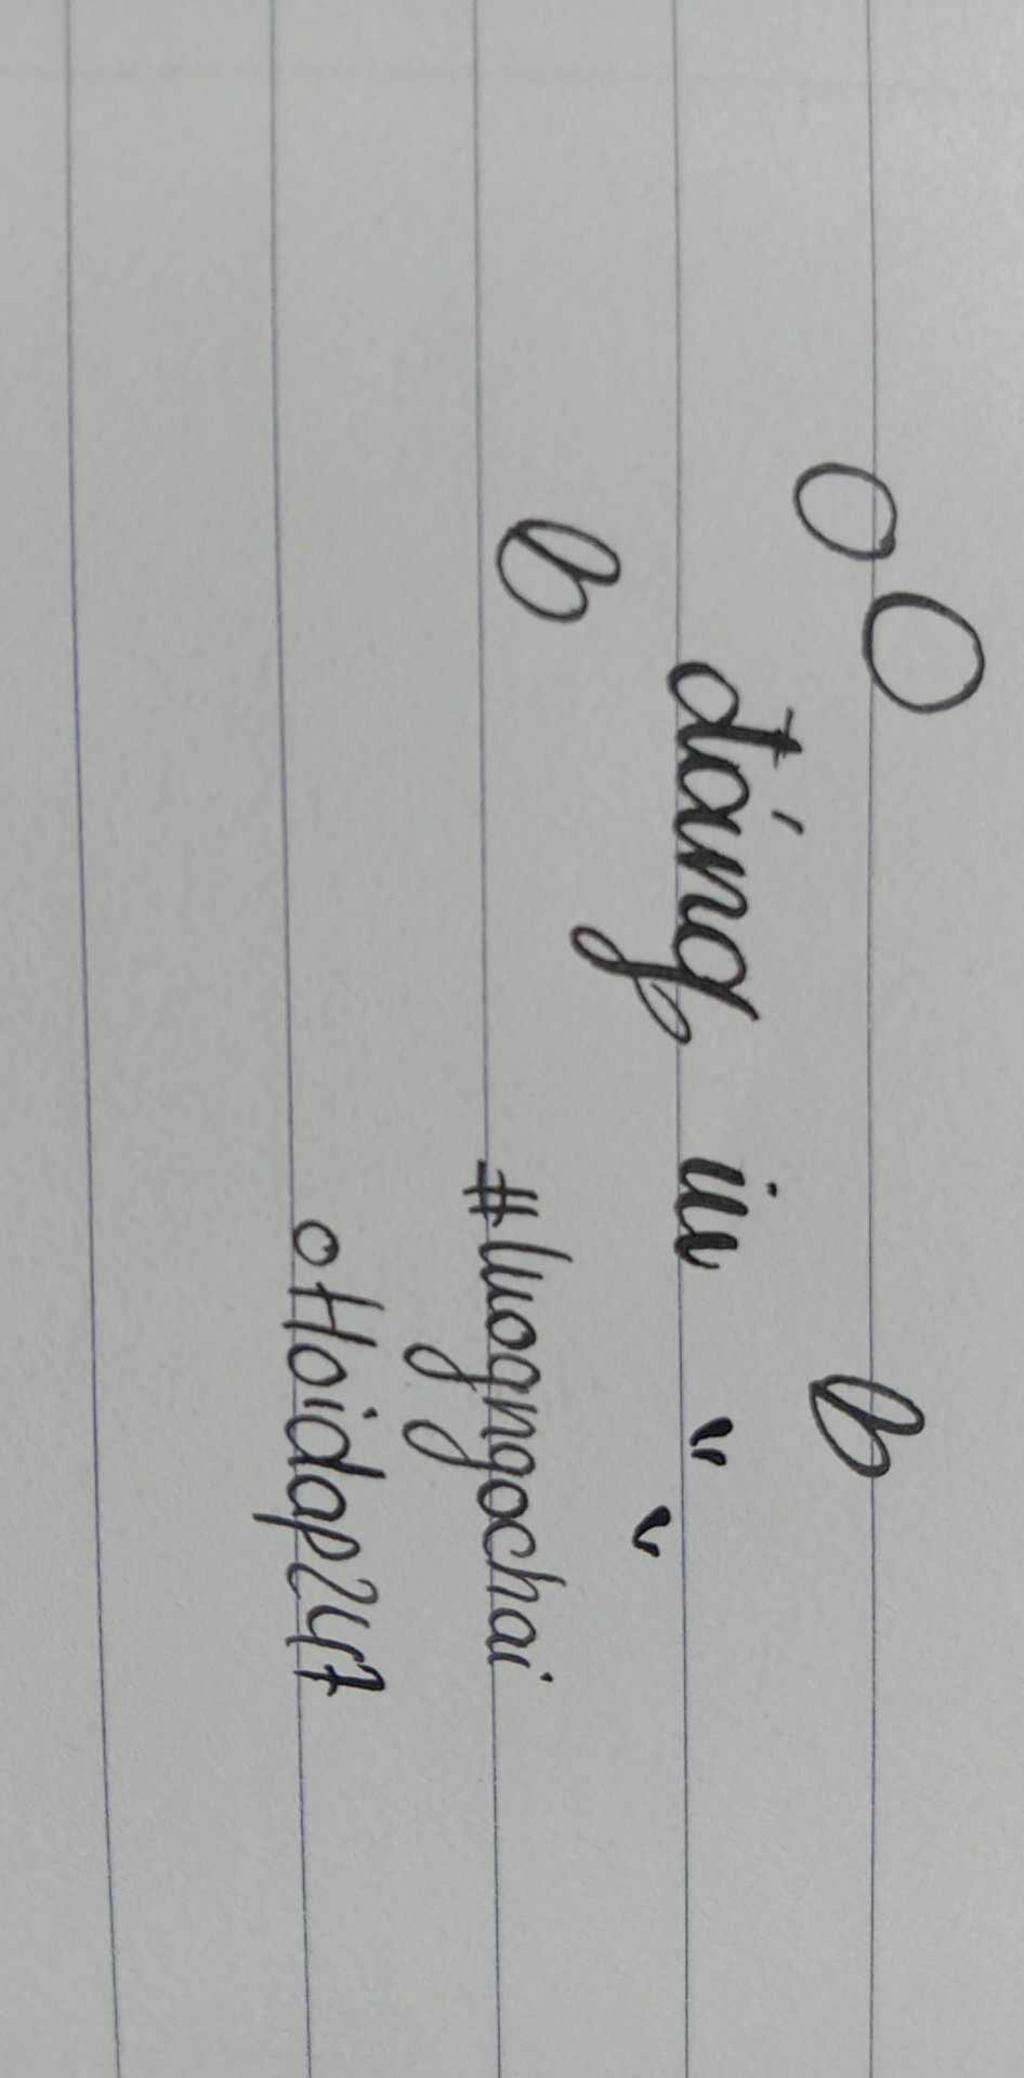 đáng iu "
#luogngochai
Hoidap247